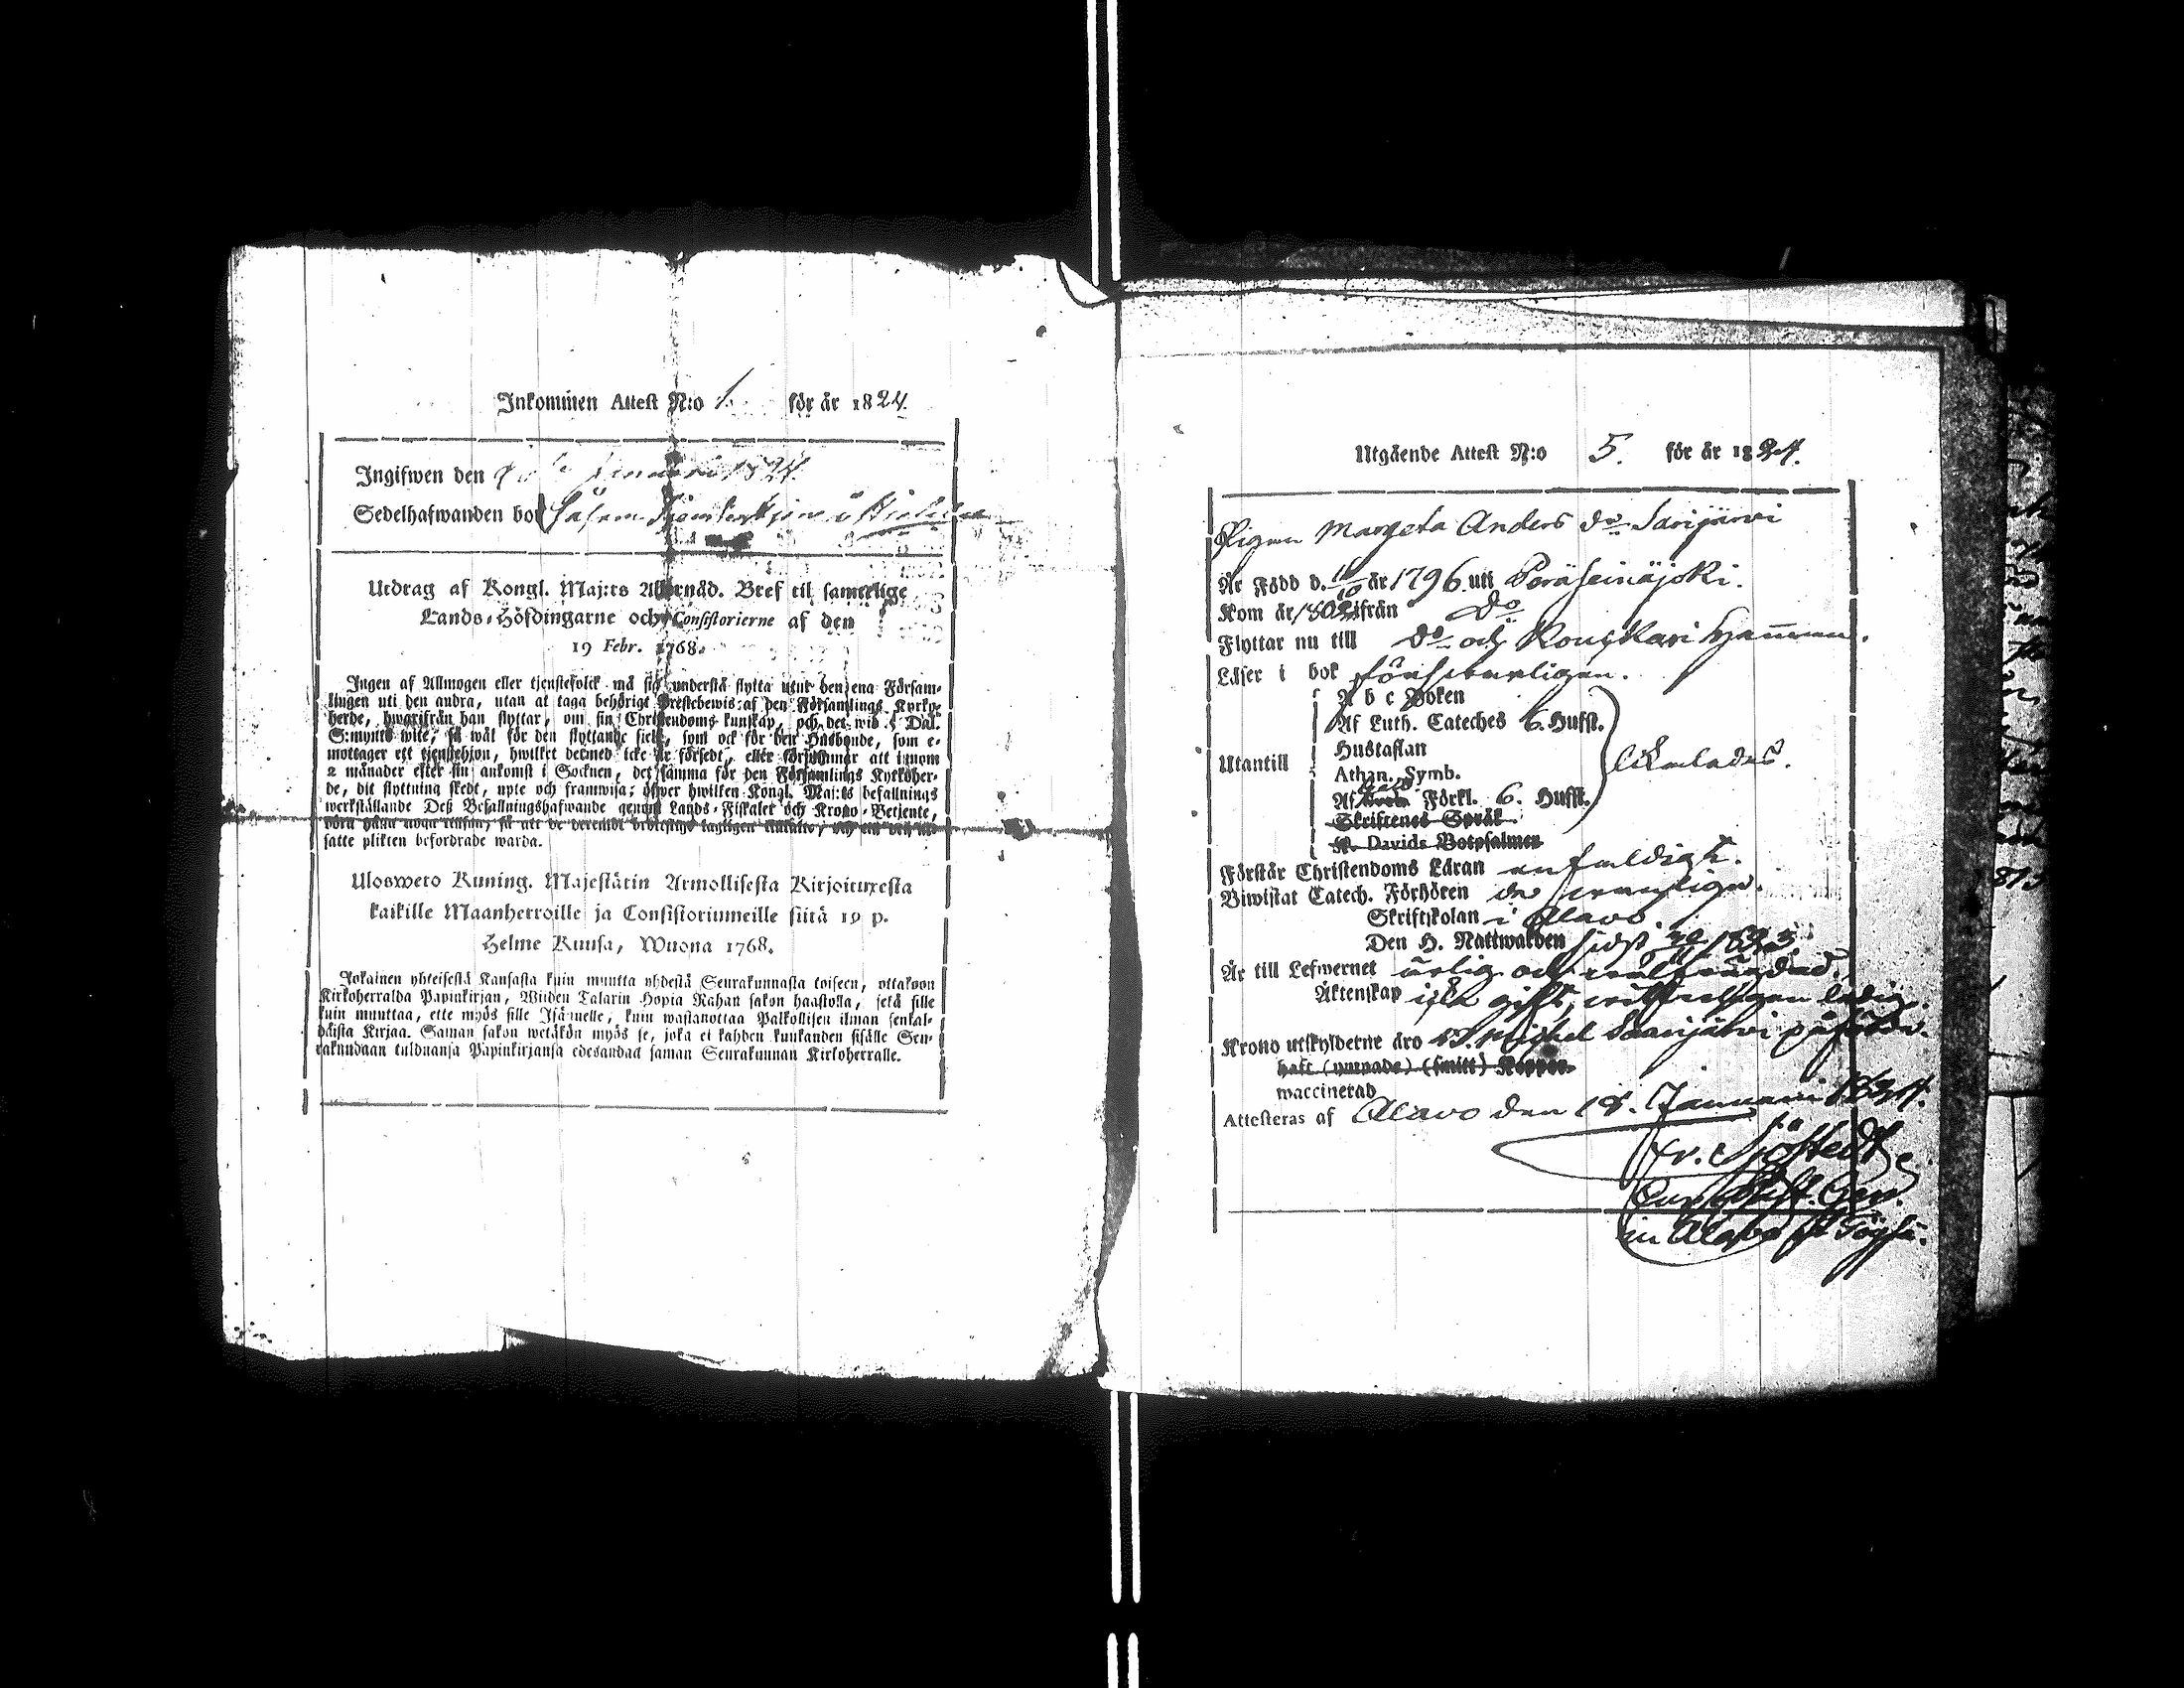 Inkommen Attest N:o 1. för år 1824.
Ingifwen den Januari 1824.
Sedelhafwanden bor såsom
Utdrag af Kongl. Maj:ts Allernåd. Bref til samtelige
Lands-Höfdingarne och Consistorierne af den
19 Febr. 1768.
Ingen af Allmogen eller tjenstefolck må sig understå flytta utur den ena Försam-
lingen uti den andra, utan at taga behörigt Prestebewis af den Församlings Kyrko-
herde, hwarifrån han flyttar, om sin Christendoms kunskap, och det wid 5 Dal.
S:mynts wite, så wäl för den flyttande sielf, som ock för den Husbonde, som e-
mottager ett tjenstehjon, hwilket dermed icke är försedt, eller försummar att innom
2 månader efter sin ankomst i Socknen, det samma för den Församlings Kyrkoher-
de, dit flyttning skedt, upte och framwisa; öfwer hwilken Kongl. Maj:ts befallnings
werkställande Deß Befallningshafwande genom Lands-Fiskaler och Krono-Betjente,
satte plikten befordrade warda.
Ulosweto Kuning. Majestätin Armollisesta Kirjoituxesta
kaikille Maanherroille ja Consistoriumeille siitä 19 p.
Helme Kuusa, Wuona 1768.
Jokainen yhteisestä Kansasta kuin muutta yhdestä Seurakunnasta toiseen, ottakoon
Kirkoherralda Papinkirjan, Wiiden Talarin Hopia Rahan sakon haastolla, sekä sille
kuin muuttaa, ette myös sille Isännelle, kuin wastanottaa Palkollisen ilman senkal-
daista Kirjaa. Saman sakon wetäkön myös se, joka ei kahden kuukanden sisälle Seu-
rakundaan tulduansa Papinkirjansa edesandaa saman Seurakunnan Kirkoherralle.
Utgående Attest N:o 5. för år 1824.
Pigan Margeta Anders do Sarijärvi
Är Född d. år 1796 uti Peräseinäjoki.
Kom år 1802 ifrån do
Flyttar nu till do och Kouckari hemman.
Läser i bok försvarligen.
A b c Boken
Af Luth. Cateches 6. Hufst.
Hustaflan
Utantill likaledes.
Athan. Symb.
Af Förkl. 6. Hufst.
Skriftenes Språk
K. Davids Botpsalmer
Förstår Christendoms Läran enfaldigt.
Biwistat Catech. Förhören de wanliga.
Skriftskolan i Alavo.
Den H. Nattwarden sidst 1823.
Är till Lefwernet ärlig och wälfrägdad.
Äktenskap icke gift, ledig.
Krono utskylderne äro Michel Saarijärvi påförde.
haft (ympade) (smitt) Koppor
waccinerad
Attesteras af Alavo den 18. Januari 1824.
Fr. Sjöstedt
in Alavo Töysä.